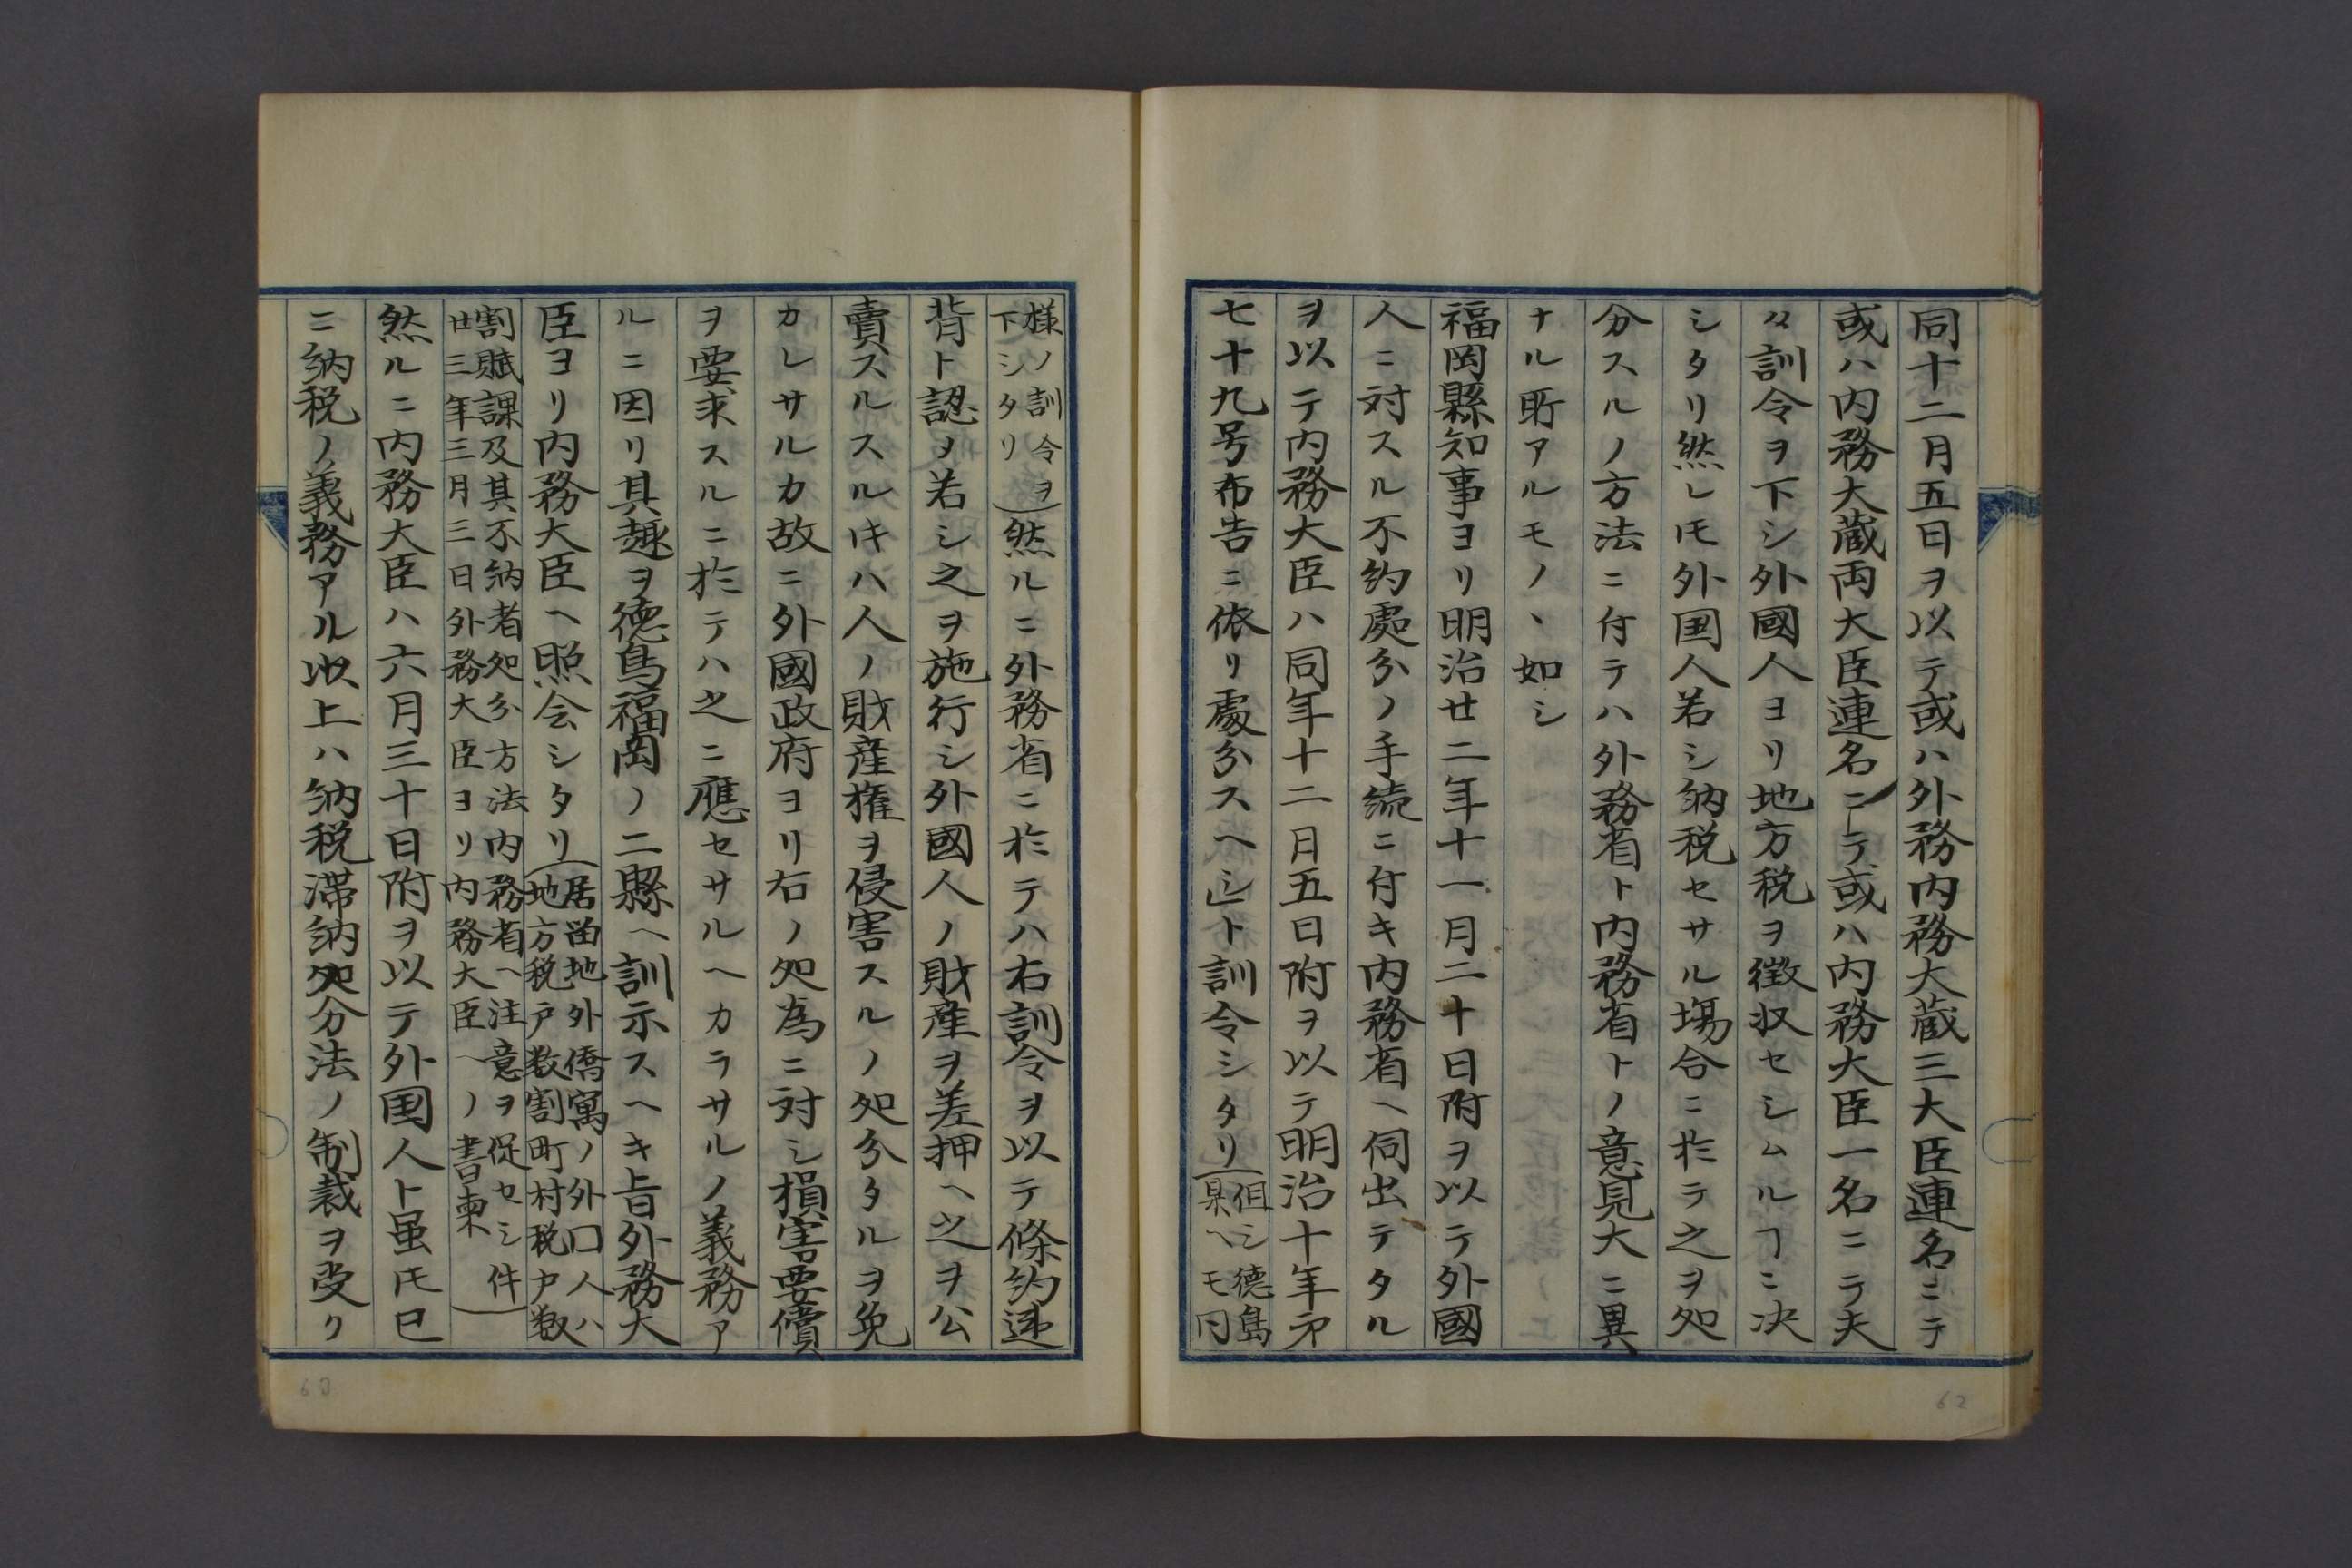 同十二月五日ヲ以テ或ハ外務内務大蔵三大臣連名ニテ
或ハ内務大蔵両大臣連名ニテ或ハ内務大臣一名ニテ夫
々訓令ヲ下シ外國人ヨリ地方税ヲ徴収セシムルヿニ决
シタリ然レ𪜈外国人若シ納税セサル塲合ニ於テ之ヲ処
分スルノ方法ニ付テハ外務省ト内務省トノ意見大ニ異
ナル所アルモノヽ如シ
福岡縣知事ヨリ明治廿二年十一月二十日附ヲ以テ外國
人ニ対スル不約處分ノ手続ニ付キ内務省ヘ伺出テタル
ヲ以テ内務大臣ハ同年十二月五日附ヲ以テ明治十年㐧
七十九号布告ニ依リ處分スヘシト訓令シタリ(但シ徳島
県ヘモ同
様ノ訓令ヲ
下シタリ)然ルニ外務省ニ於テハ右訓令ヲ以テ條約違
背ト認メ若シ之ヲ施行シ外國人ノ財産ヲ差押ヘ之ヲ公
賣スルスル𪜈ハ人ノ財産権ヲ侵害スルノ処分タルヲ免
カレサルカ故ニ外國政府ヨリ右ノ処為ニ対シ損害要償
ヲ要求スルニ於テハ之ニ應セサルヘカラサルノ義務ア
ルニ因リ其趣ヲ徳島福岡ノ二縣ヘ訓示スヘキ旨外務大
臣ヨリ内務大臣ヘ照会シタリ(居留地外僑寓ノ外囗人ハ
地方税戸数割町村税戸数
割賦課及其不納者処分方法内務省ヘ注意ヲ促セシ件
廿三年三月三日外務大臣ヨリ内務大臣ヘノ書柬)
然ルニ内務大臣ハ六月三十日附ヲ以テ外国人ト虽𪜈已
ニ納税ノ義務アル以上ハ納税滞納処分法ノ制裁ヲ受ク
60
62